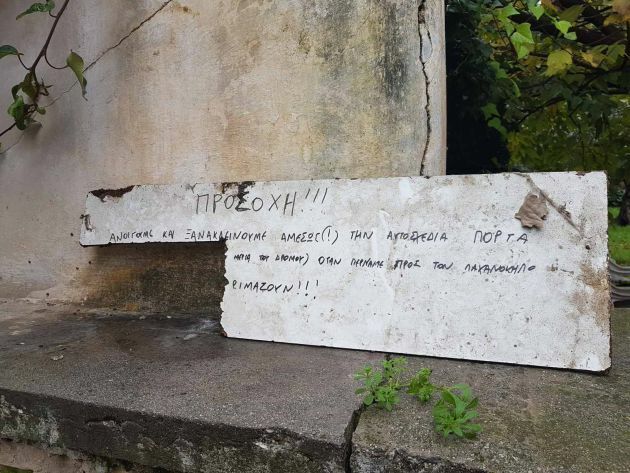 ΠΡΟΣΟΧΗ!!!
ΑΝΟΙΓΟΥΜΕ ΚΑΙ ΞΑΝΑΚΛΕΙΝΟΥΜΕ ΑΜΕΣΩΣ(!) ΤΗΝ ΑΥΤΟΣΧΕΔΙΑ ΠΟΡΤΑ
ΜΕΡΙΑ ΤΟΥ ΔΡΟΜΟΥ) ΟΤΑΝ ΠΕΡΝΑΜΕ ΠΡΟΣ ΤΟΝ ΛΑΧΑΝΟΚΗΠΟ
ΡΙΜΑΖΟΥΝ!!!